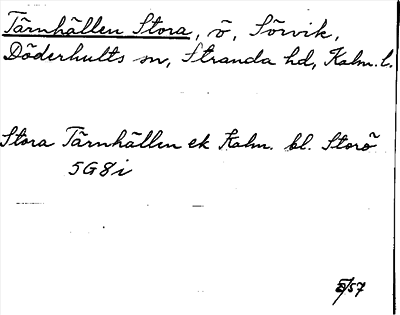 Tärnhällen Stora, ö, Sörvik,
Döderhults sn, Stranda hd, Kalm. l.
Stora Tärnhällen ek Kalm. bl. Storö
5G8i
/57